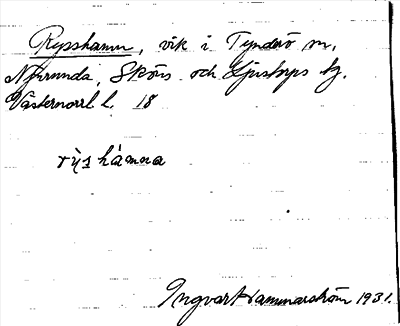 Rysshamn, vik i Tynderö sn,
Njurunda, Sköns och Ljustorps tg.
Västernorrl. l. 18
rỳs hámna
Ingvar Hammarström 1931.